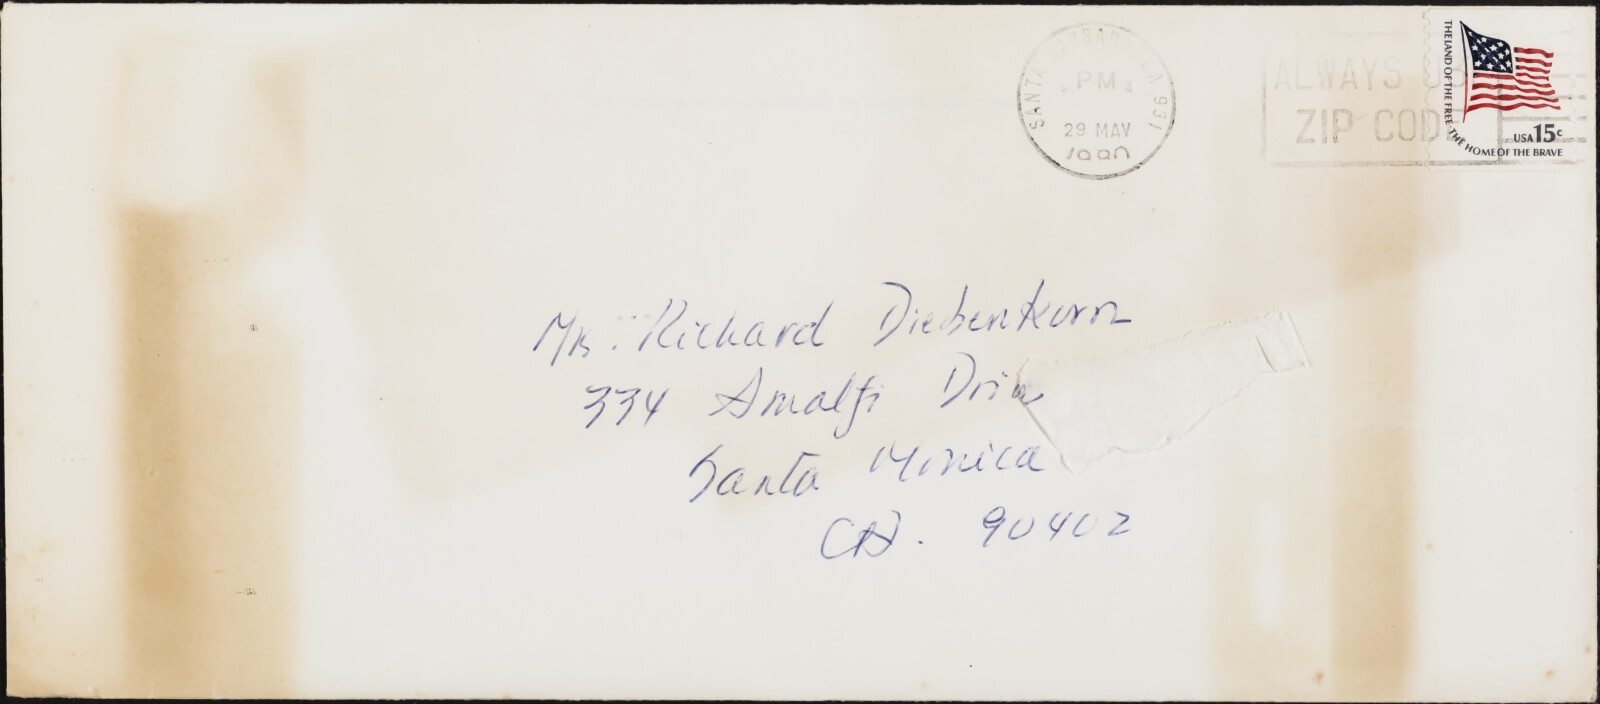 SANTA BARBARA, CA 931
PM
29 MAY
1980
ALWAYS USE
ZIP CODE
THE LAND OF THE FREE · THE HOME OF THE BRAVE
USA 15c
Mr. Richard Diebenkorn
334 Amalfi Drive
Santa Monica
CA. 90402